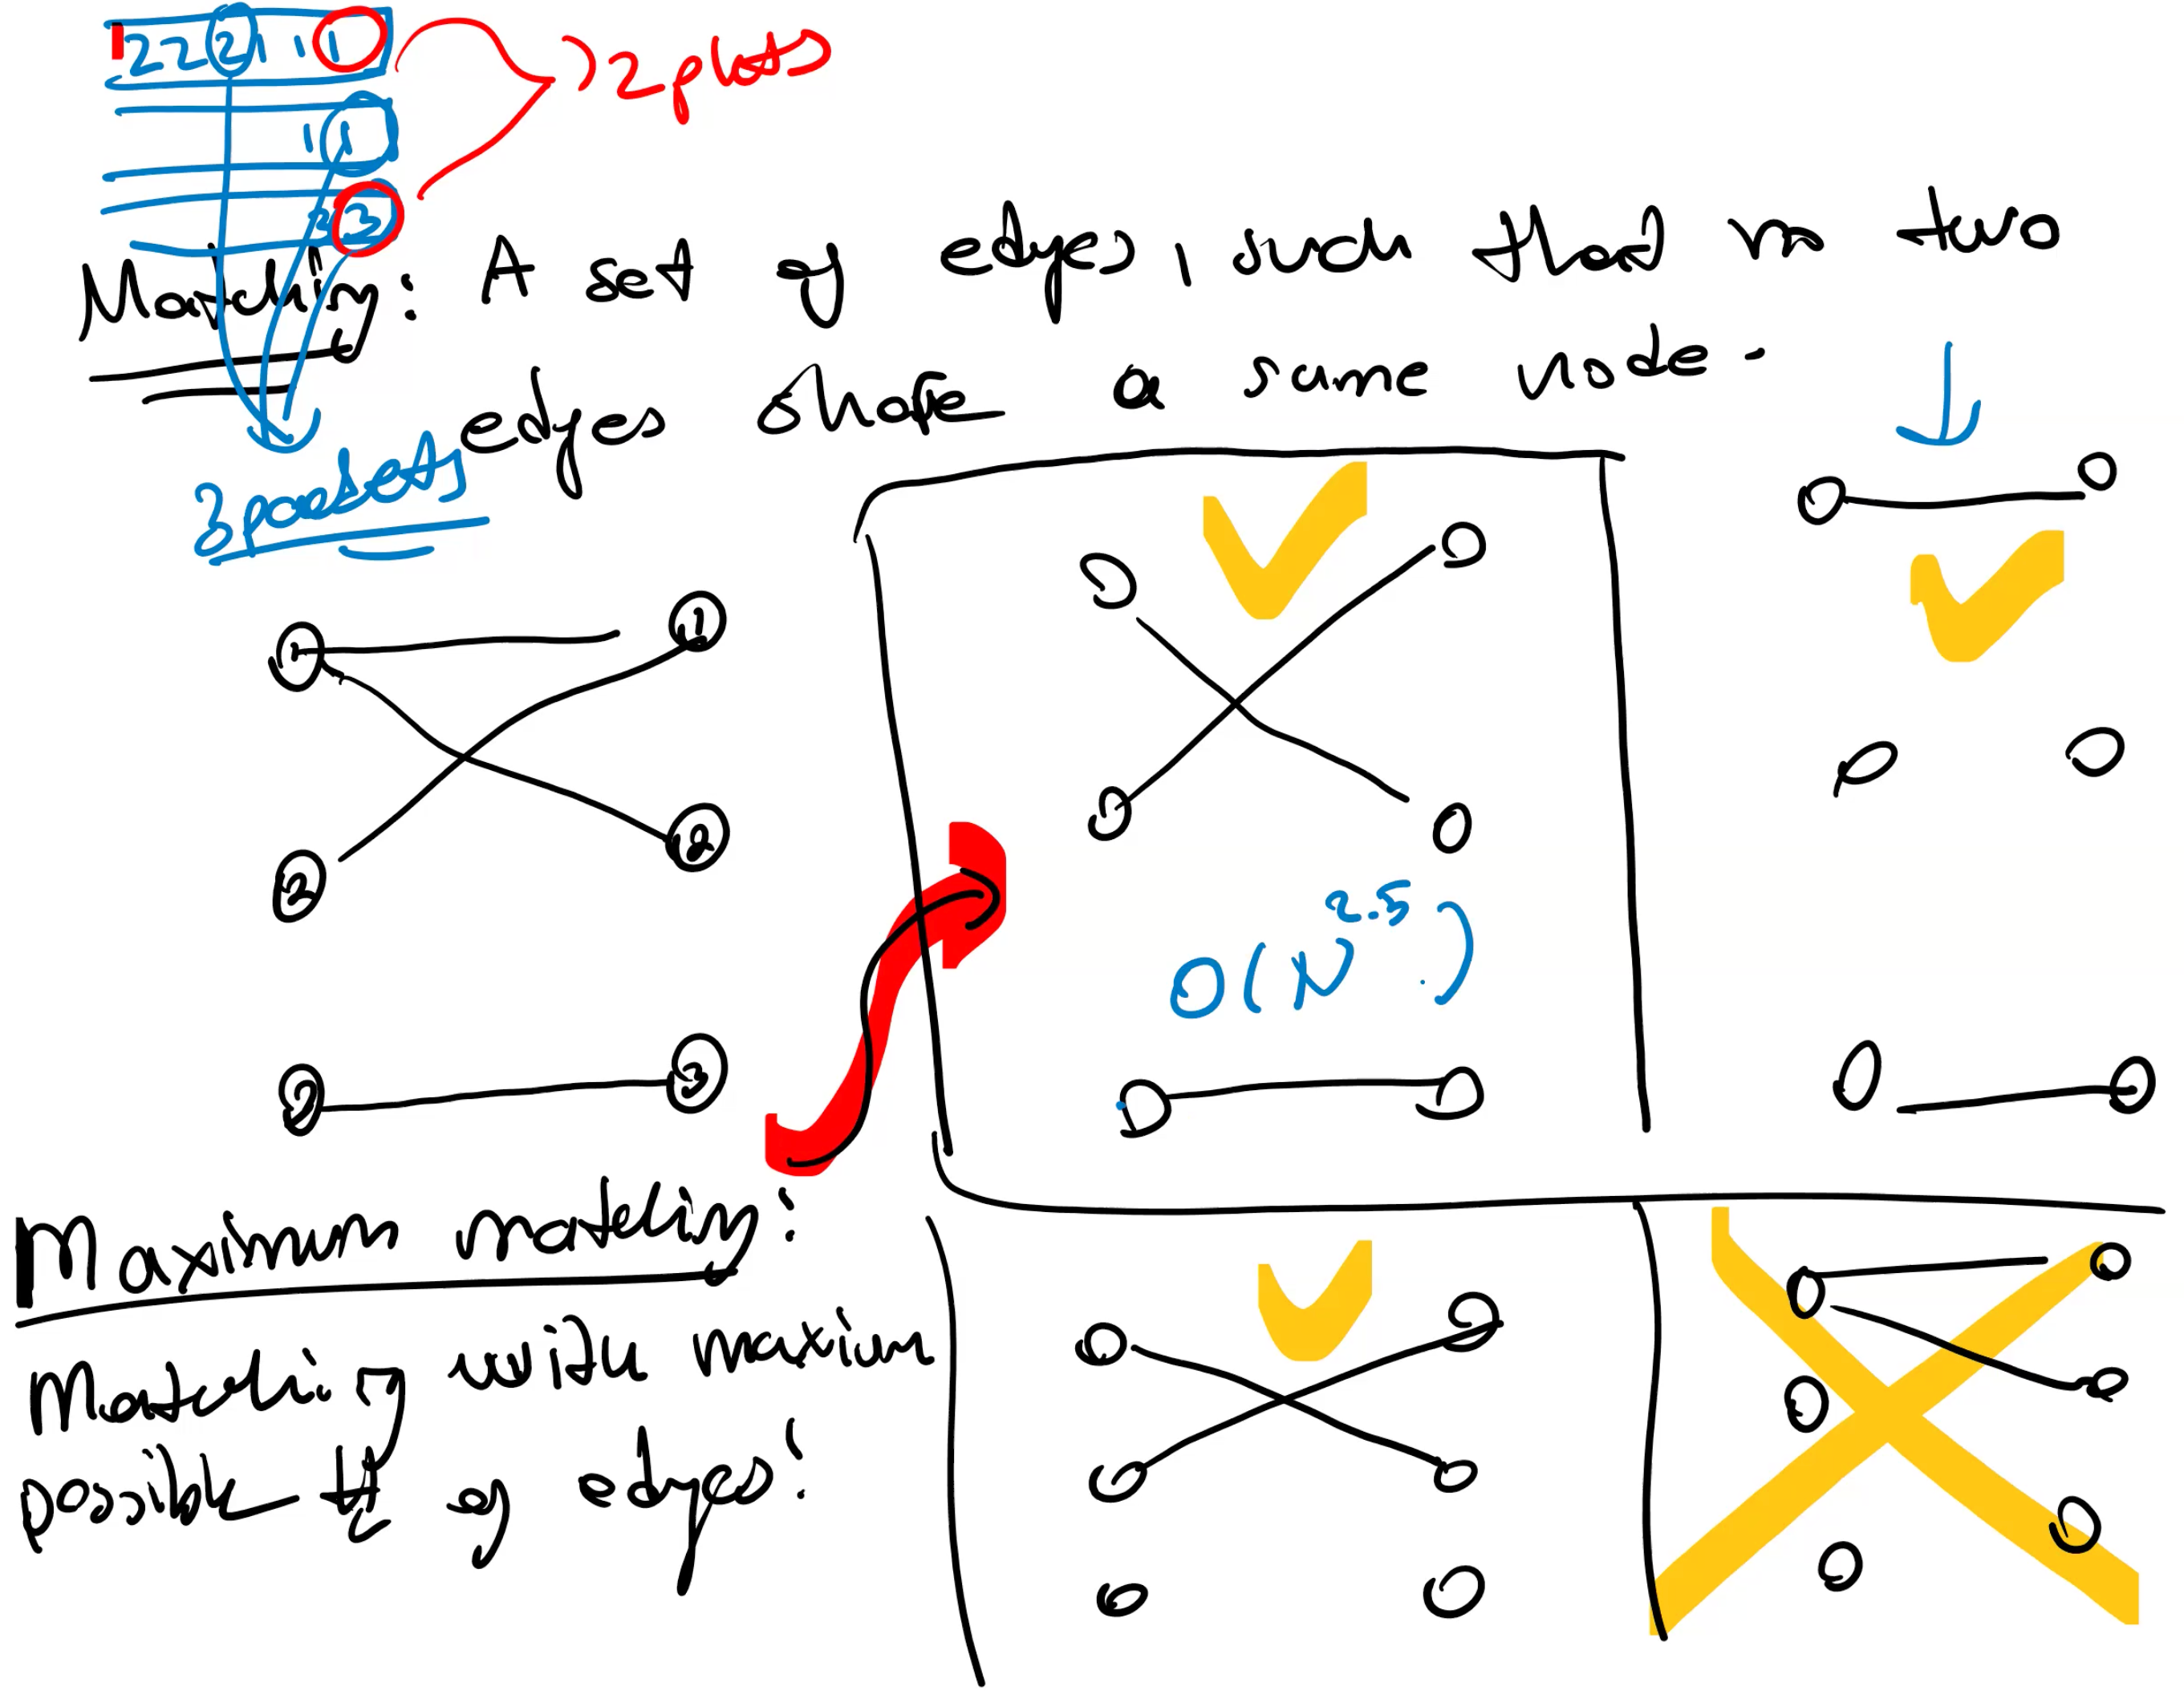 2 2 2 1 1 1
>2 pkts
1 1
3 3
Matching: A set of edges, such that no two
edges share a same node.
3 packets
1 1
2 2
O(N^2.5)
3 3
Maximum matching:
Matching with maxium
possible # of edges!